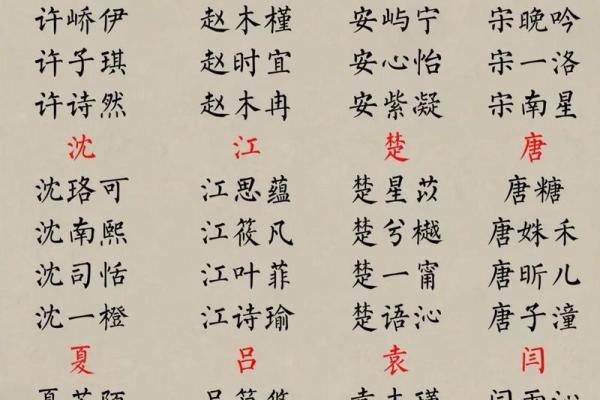 许峤伊 赵木槿 安屿宁 宋晚吟
许子琪 赵时宜 安心怡 宋一洛
许诗然 赵木冉 安紫凝 宋南星
沈 江 楚 唐
沈珞可 江思蕴 楚星苡 唐糖
沈南熙 江筱凡 楚兮樾 唐姝禾
沈司恬 江叶菲 楚一甯 唐昕儿
沈一橙 江诗瑜 楚语沁 唐子潼
夏 吕 袁 闫